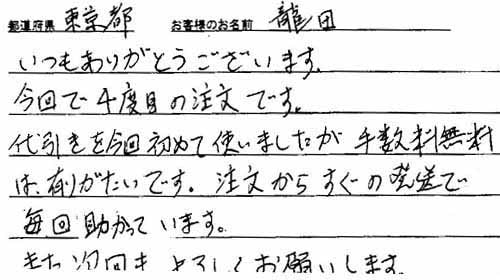 都道府県 東京都 お客様のお名前 龍田
いつもありがとうございます。
今回で4度目の注文です。
代引きを今回初めて使いましたが手数料無料
は、有りがたいです。注文からすぐの発送で
毎回助かっています。
また次回もよろしくお願いします。